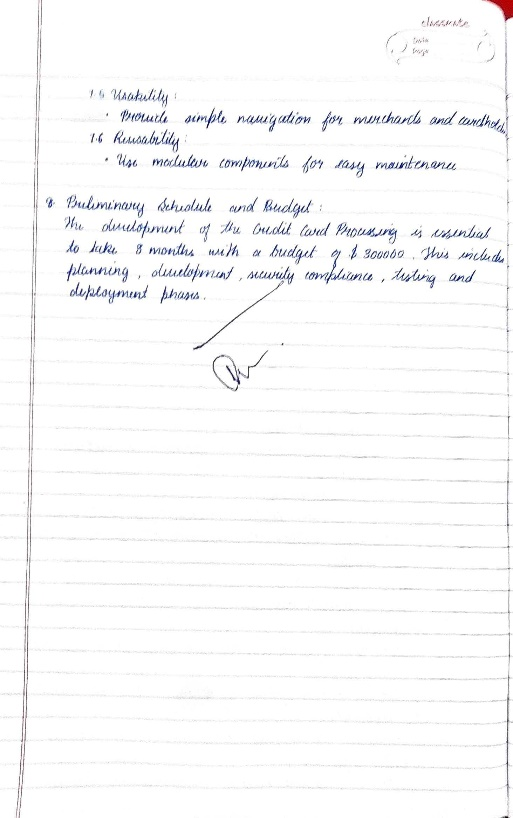 classmate
Date
Page
1.5 Usability:
• Provide simple navigation for merchants and cardholders
1.6 Reusability:
• Use modular components for easy maintenance
8 Preliminary Schedule and Budget:
The development of the Credit Card Processing is essential
to take 8 months with a budget of $ 300000. This includes
planning, development, security compliance, testing and
deployment phases.